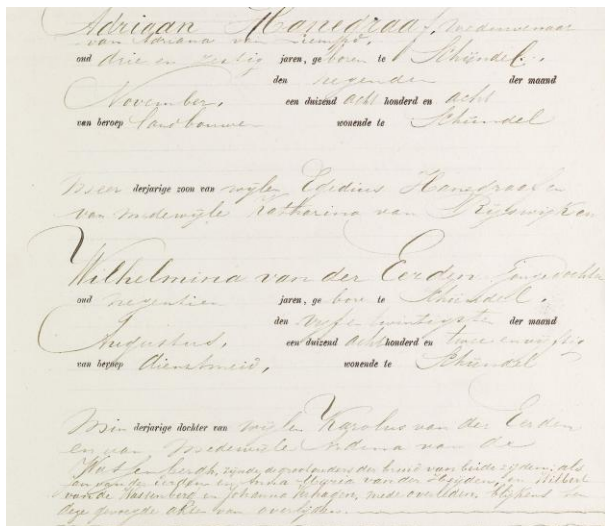 Adriaan Hanegraaf, weduwenaar
van Adriana van Liempd,
oud drie en zestig jaren, geboren te Schijndel
den negenden der maand
November, een duizend acht honderd en acht
van beroep landbouwer wonende te Schijndel
Meerderjarige zoon van wijlen Egidius Hanegraaf en
van medewijle Katharina van Rijswijk en
Wilhelmina van der Eerden Jonge dochter
oud negentien jaren, gebore te Schijndel,
den vijfentwintigsten der maand
Augustus, een duizend acht honderd en twee en vijftig
van beroep dienstmeid, wonende te Schijndel
Minderjarige dochter van wijlen Karolus van der Eerden
en van medewijle Ardina van de
Wassenbergh, zijnde de grootouders der bruid van beide zijden, als
Jan van der Eerden en Anna Maria van der Heijden, en Wilbert
van de Wassenberg en Johanna Verhagen, mede overleden, blijkens de
deze gevoegde akten van overlijden